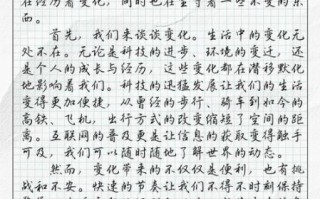 在经历着变化，同时也在坚守着一些不变的东
西。
首先，我们来谈谈变化。生活中的变化无
处不在。无论是科技的进步、环境的变迁，还
是个人的成长与经历，这些变化都在潜移默化
地影响着我们。科技的迅猛发展让我们的生活
变得更加便捷，从曾经的步行、骑车到如今的
高铁、飞机，出行方式的改变缩短了空间的距
离。互联网的普及更是让信息的获取变得触手
可及，我们可以随时随地了解世界的动态。
然而，变化带来的不仅仅是便利，也有挑
战和不安。快速的节奏让我们不得不时刻保持